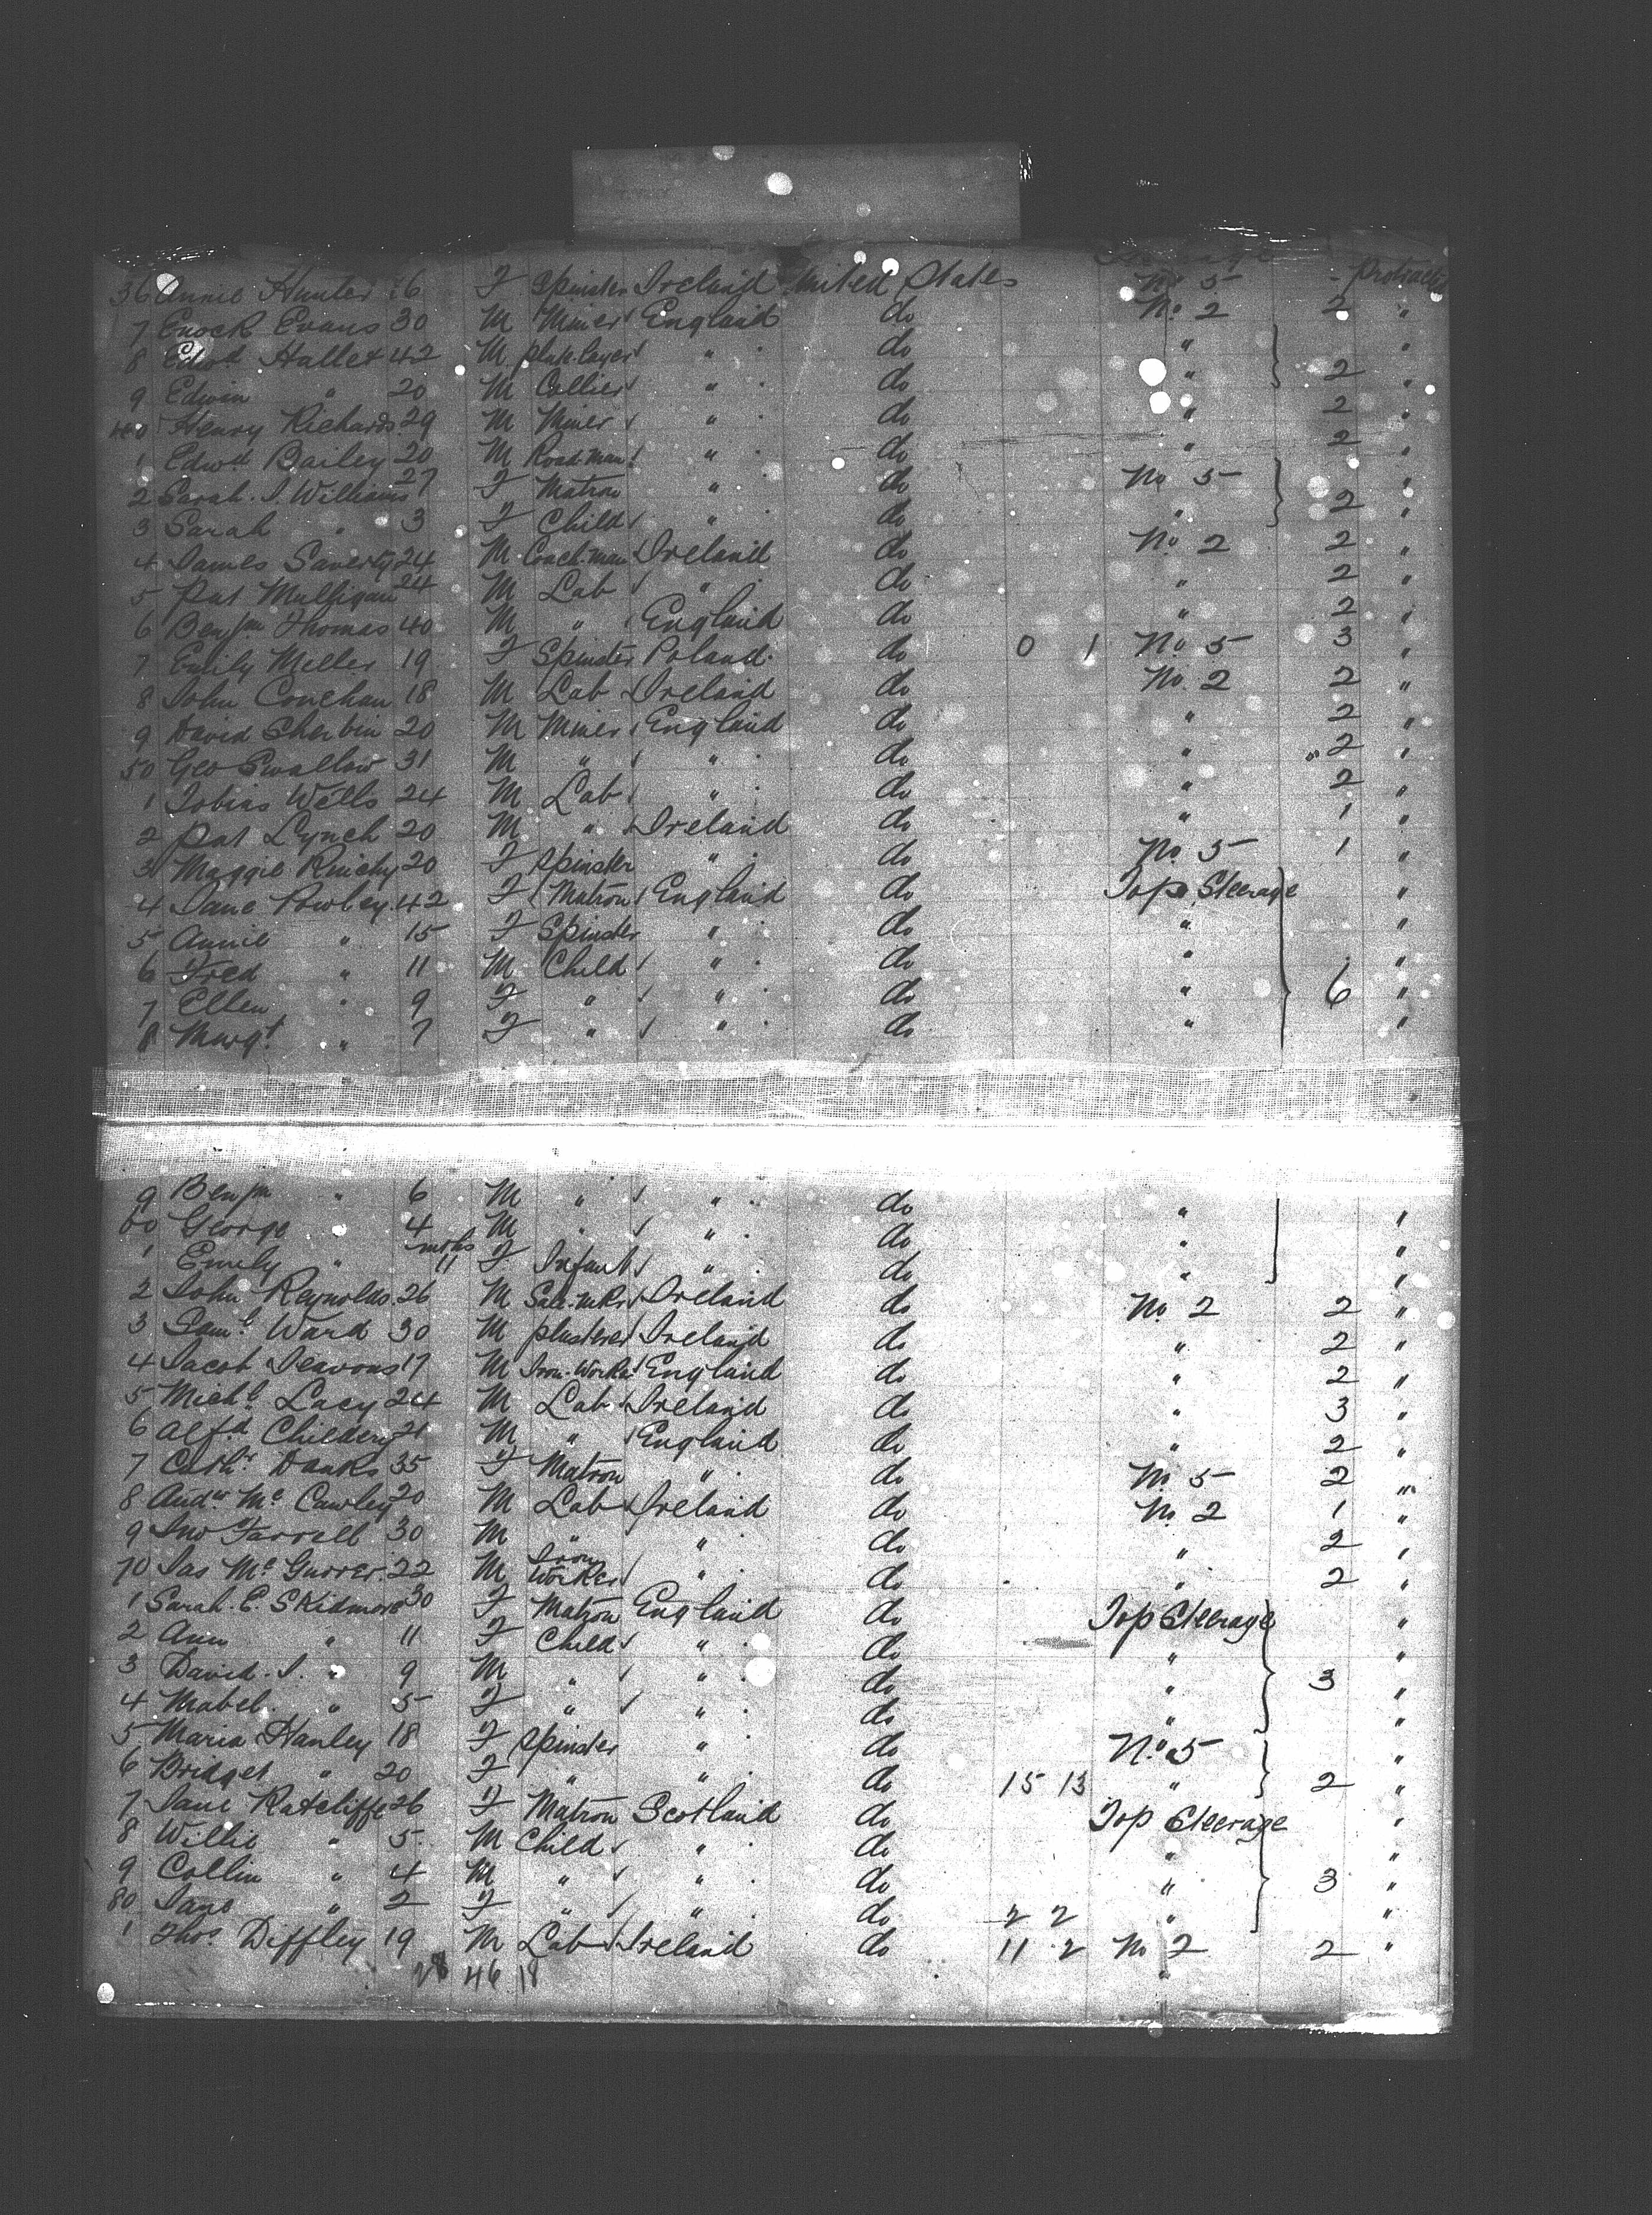 36 Annie Hunter 16 F Spinster Ireland United States No 5 - Protracted
7 Enock Evans 30 M Miner England do No. 2 2 "
8 Edwd Hallet 42 M plate layer " do " "
9 Edwin " 20 M Collier " do " 2 "
40 Henry Richards 29 M Miner " do " 2 "
1 Edwd Bailey 20 M Road man " do " 2 "
2 Sarah. J. Williams 27 F Matron " do No 5 "
3 Sarah " 3 F Child " do " 2 "
4 James 24 M Coach. man Ireland do No. 2 2 "
5 Pat Mulligan 24 M Lab " do " 2 "
6 Benjm Thomas 40 M " England do " 2 "
7 Emily Meller 19 F Spinster Poland do 0 1 No 5 3 "
8 John Conehan 18 M Lab Ireland do No. 2 2 "
9 David Cherbin 20 M Miner England do " 2 "
50 Geo Swallow 31 M " " do " 2 "
1 Tobias Wells 24 M Lab " do " 2 "
2 Pat Lynch 20 M " Ireland do " 1 "
3 Maggie 20 F Spinster " do No. 5 1 "
4 Jane Powley 42 F Matron England do Top Steerage "
5 Annie " 15 F Spinster " do " "
6 Fred " 11 M Child " do " "
7 Ellen " 9 F " " do " 6 "
8 Margt " 7 F " " do " "
9 Benjm " 6 M " " do " "
60 George " 4 M " " do " "
1 Emily " mths 11 F Infant " do " "
2 John Reynolds 26 M Ireland do No. 2 2 "
3 Saml Ward 30 M plasterer Ireland do " 2 "
4 Jacob Jeavons 17 M Iron. Worker England do " 2 "
5 Michl Lacy 24 M Lab Ireland do " 3 "
6 Alfd 21 M " England do " 2 "
7 Cathe Danks 35 F Matron " do No. 5 2 "
8 Andw Mc Cawley 20 M Lab Ireland do No. 2 1 "
9 Jno Farrell 30 M " " do " 2 "
70 Jas Mc Gurrer 22 M Iron Worker " do " 2 "
1 Sarah. E. Skidmore 30 F Matron England do Top Steerage "
2 Ann " 11 F Child " do " "
3 David. J. " 9 M " " do " 3 "
4 Mabel " 5 F " " do " "
5 Maria Hanley 18 F Spinster " do No. 5 "
6 Bridget " 20 F " " do 15 13 " 2 "
7 Jane Ratcliffe 26 F Matron Scotland do Top Steerage "
8 Willie " 5 M Child " do " "
9 Collin " 4 M " " do " 3 "
80 Jane " 2 F " " do 2 2 " "
1 Thos Diffley 19 M Lab Ireland do 11 2 No 2 2 "
28 46 18 "